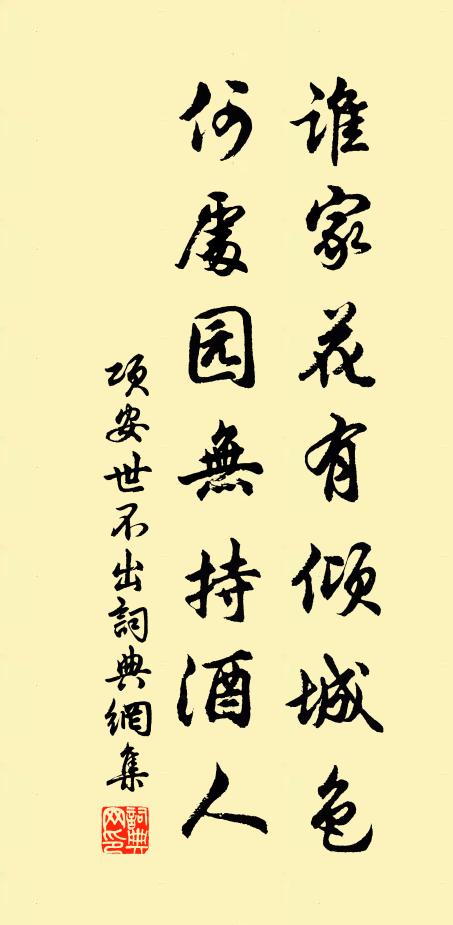 谁家花有倾城色
何處园無持酒人
项安世不出詞典網集
詞典网印